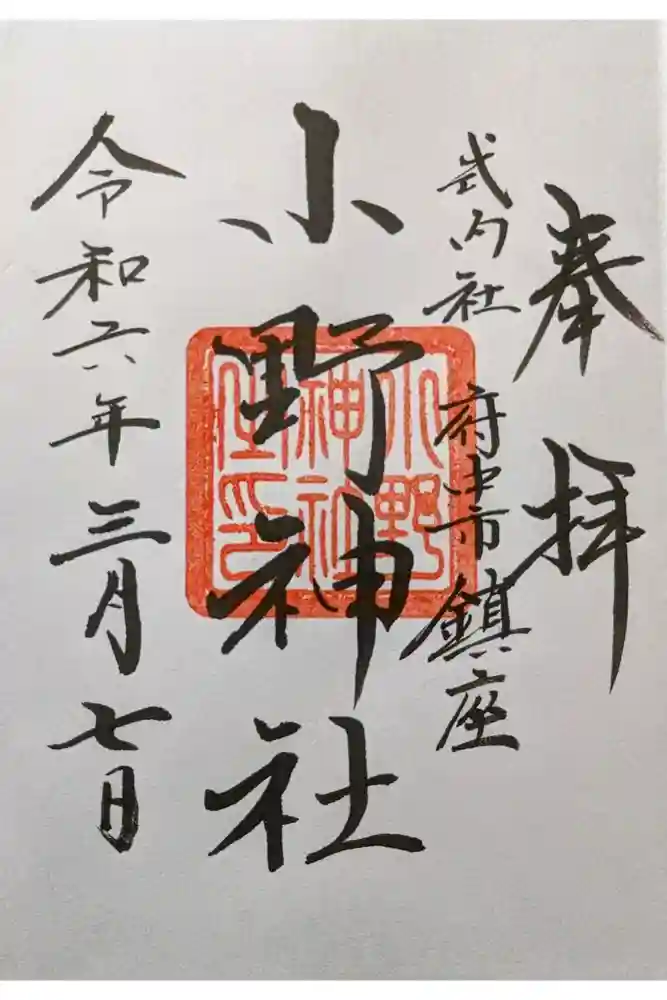 奉拝
式内社 府中市鎮座
小野神社
小野神社座印
令和六年三月七日